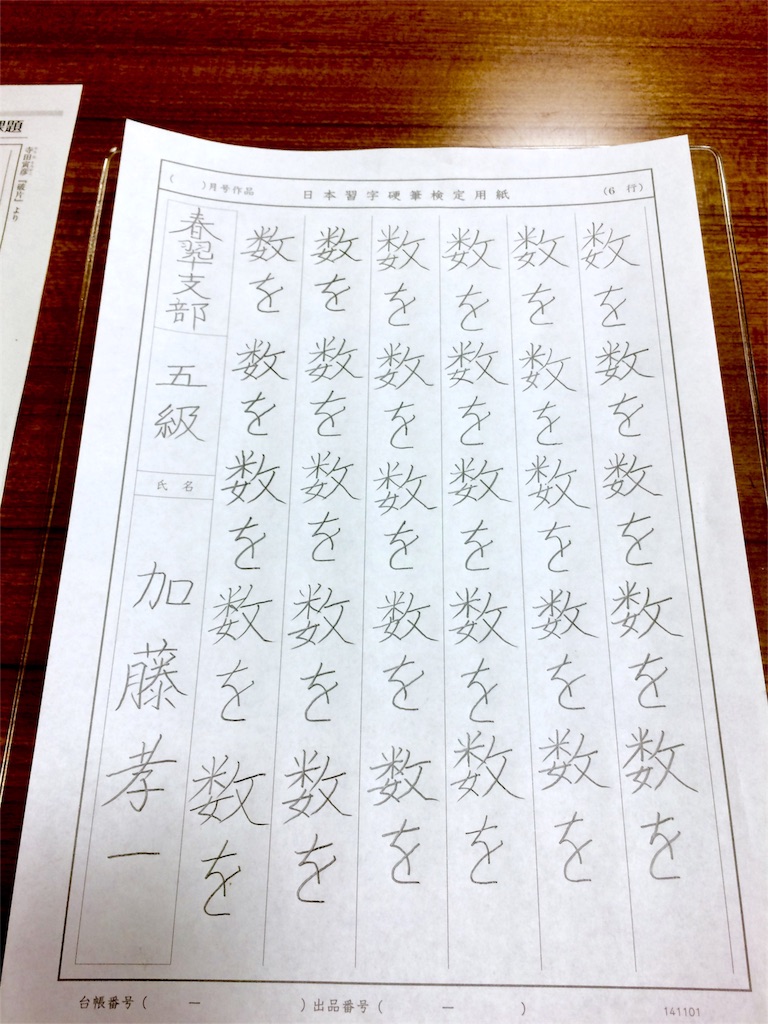 ( )月号作品 日本習字硬筆検定用紙 (6 行)
数を数を数を数を数を
数を数を数を数を数を
数を数を数を数を数を
数を数を数を数を数を
数を数を数を数を数を
数を数を数を数を数を
春翠支部
五級
氏名
加藤孝一
台帳番号( ー )出品番号( ー )
141101
課題
寺田寅彦『破片』より